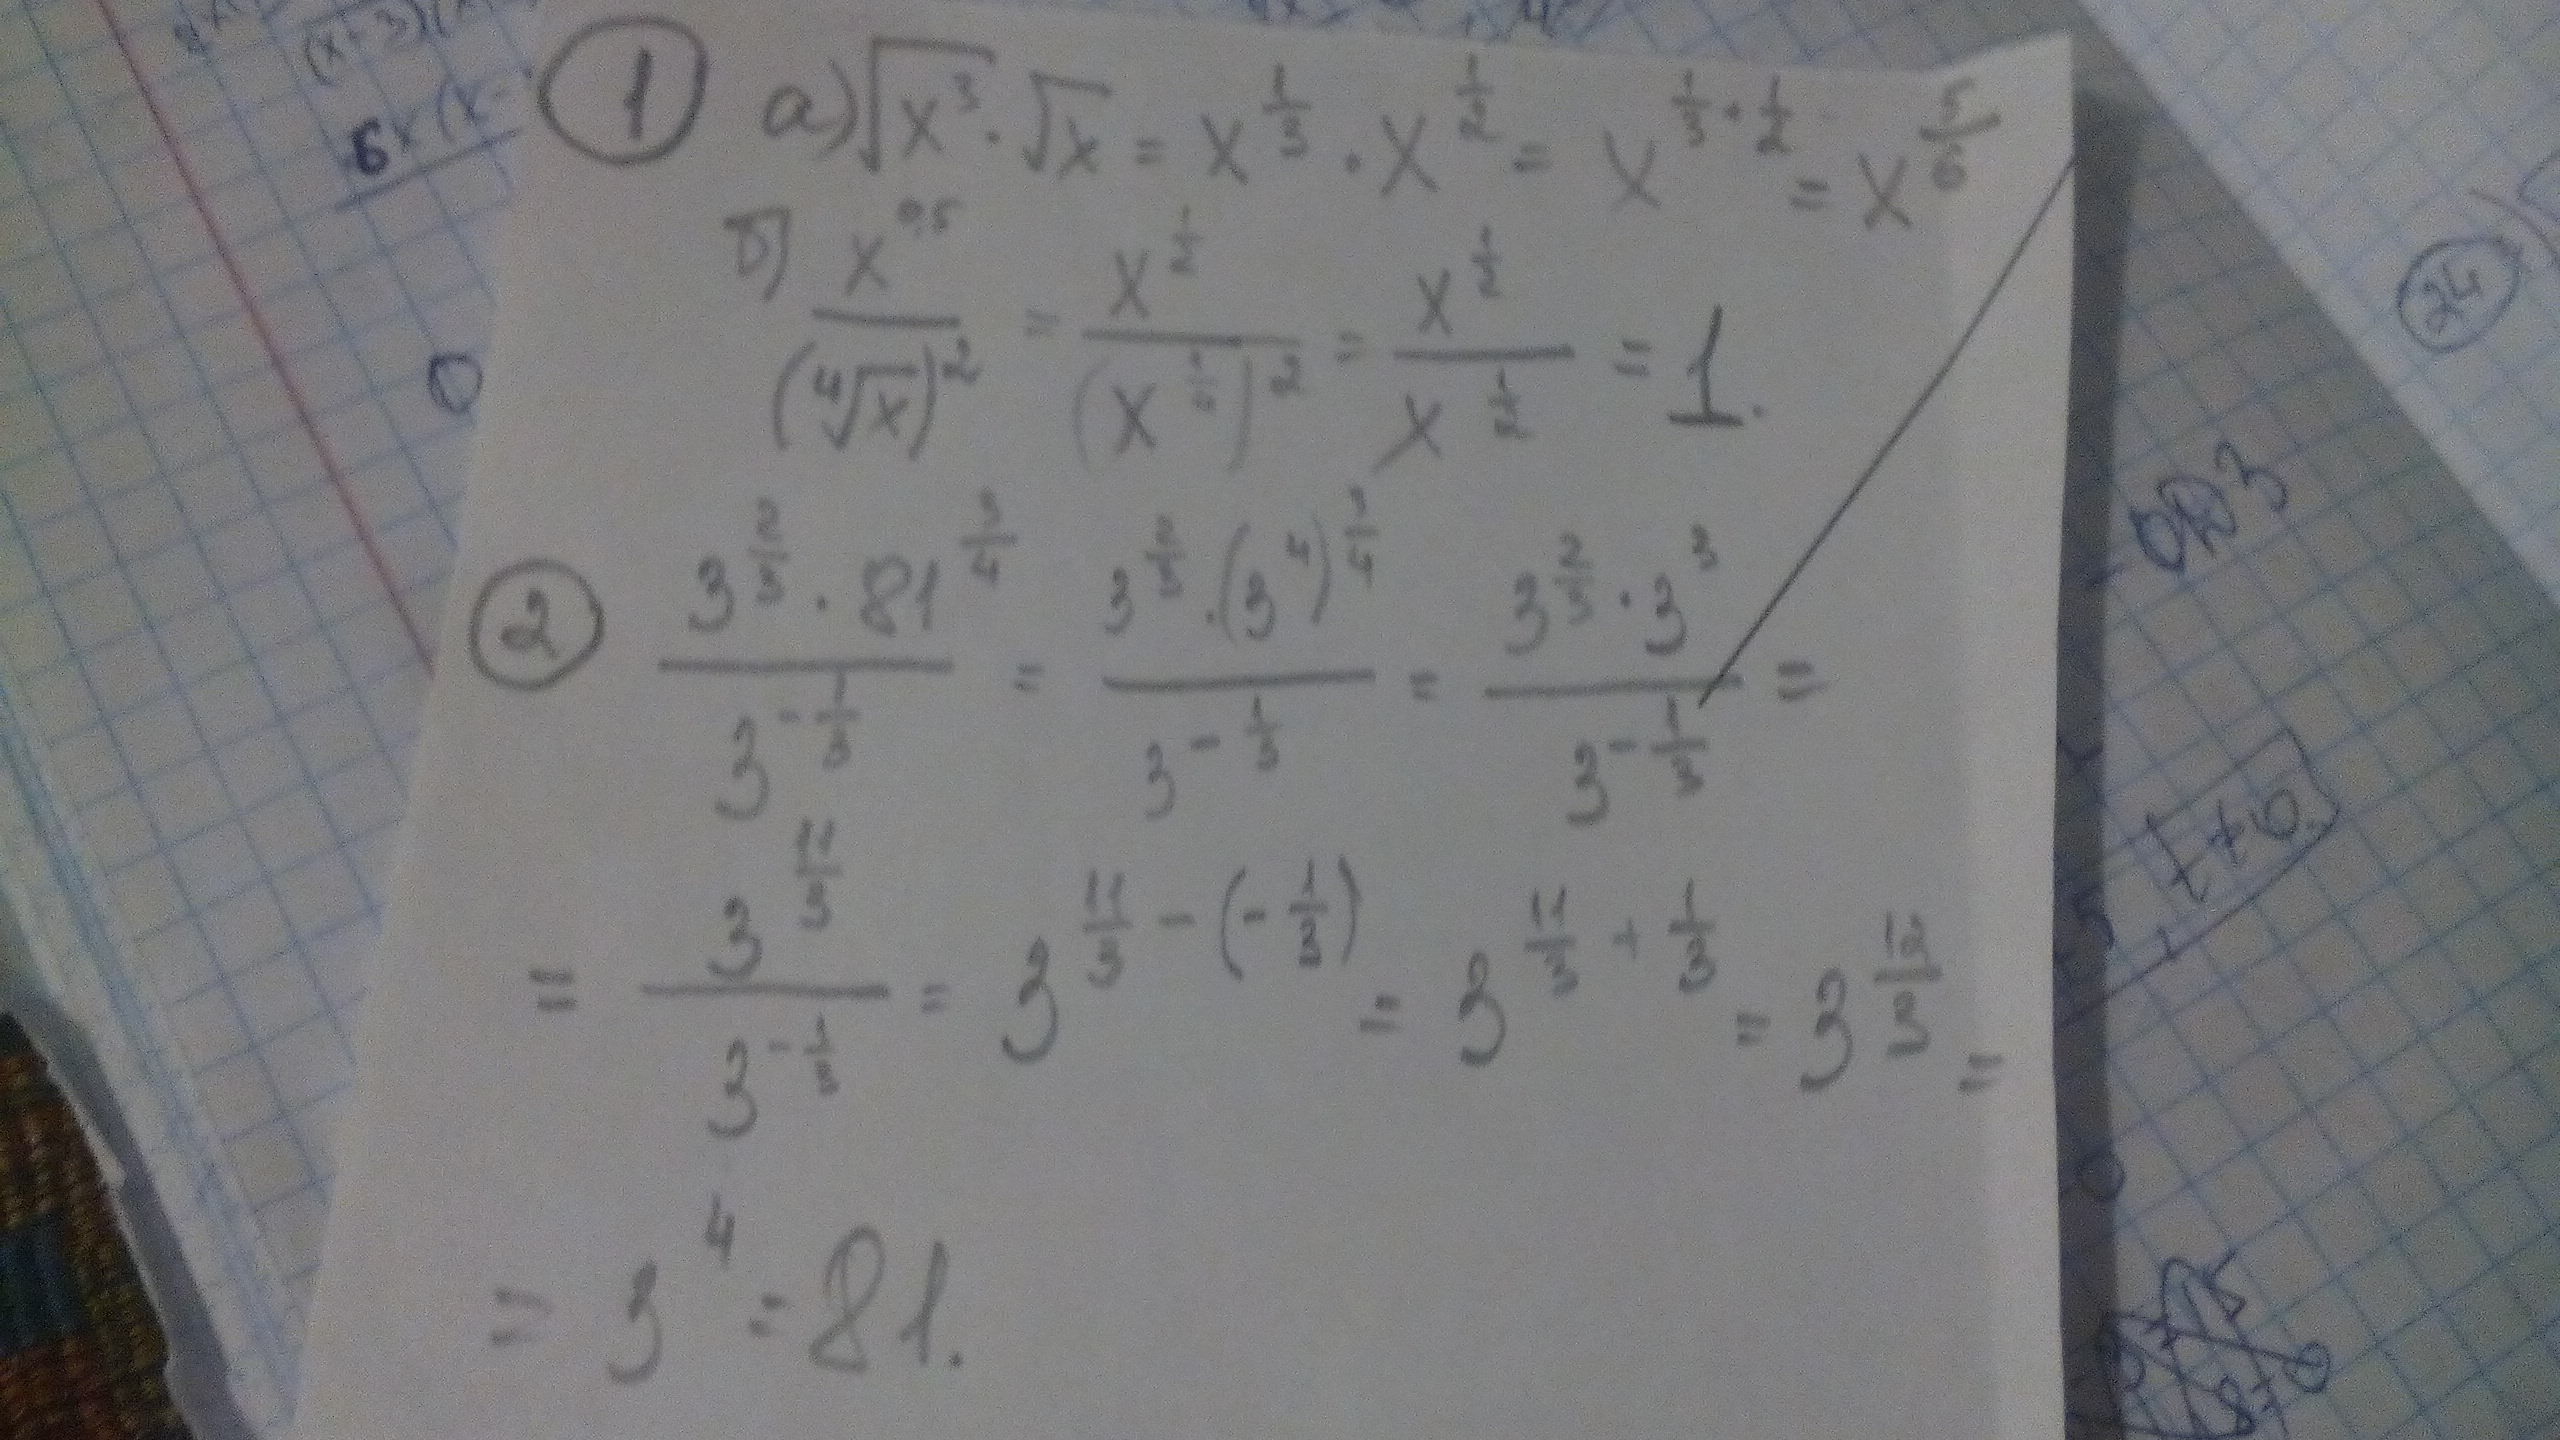 ① а) √x³ · √x = x^(1/3) · x^(1/2) = x^(1/3 + 1/2) = x^(5/6)
б) x^(0,5) / (⁴√x)² = x^(1/2) / (x^(1/4))² = x^(1/2) / x^(1/2) = 1.
② 3^(2/3) · 81^(3/4) / 3^(-1/3) = 3^(2/3) · (3^4)^(3/4) / 3^(-1/3) = 3^(2/3) · 3³ / 3^(-1/3) =
= 3^(11/3) / 3^(-1/3) = 3^(11/3 - (-1/3)) = 3^(11/3 + 1/3) = 3^(12/3) =
= 3⁴ = 81.
24
ОДЗ